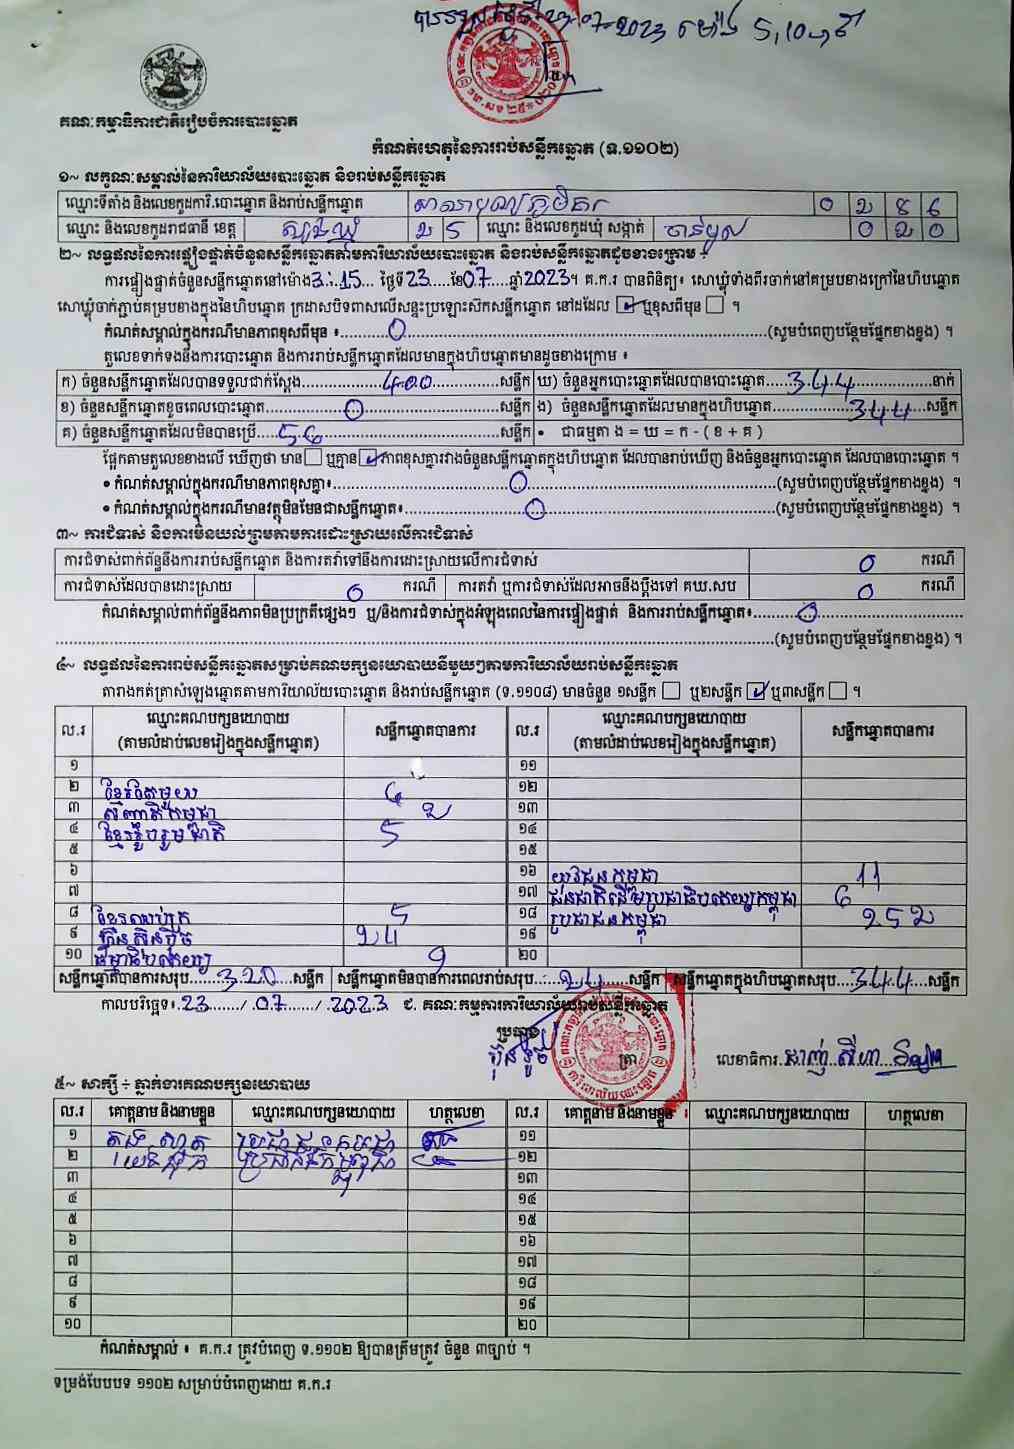 23-07-2023 ម៉ោង 5,10
គណៈកម្មាធិការជាតិរៀបចំការបោះឆ្នោត
កំណត់ហេតុនៃការរាប់សន្លឹកឆ្នោត (ទ.១១០២)
១~ លក្ខណៈសម្គាល់នៃការិយាល័យបោះឆ្នោត និងរាប់សន្លឹកឆ្នោត
ឈ្មោះទីតាំង និងលេខកូដការិ.បោះឆ្នោត និងរាប់សន្លឹកឆ្នោត
ឈ្មោះ និងលេខកូដរាជធានី ខេត្ត ត្បូងឃ្មុំ ២ 5 ឈ្មោះ និងលេខកូដឃុំ សង្កាត់ 0 ២ 0
២~ លទ្ធផលនៃការផ្ទៀងផ្ទាត់ចំនួនសន្លឹកឆ្នោតតាមការិយាល័យបោះឆ្នោត និងរាប់សន្លឹកឆ្នោតដូចខាងក្រោម ÷
ការផ្ទៀងផ្ទាត់ចំនួនសន្លឹកឆ្នោតនៅម៉ោង 3:15 ថ្ងៃទី 23 ខែ 07 ឆ្នាំ 2023។ គ.ក.រ បានពិនិត្យ៖ សោឃ្លុំទាំងពីរចាក់នៅគម្របខាងក្រៅនៃហិបឆ្នោត
សោឃ្លុំចាក់ភ្ជាប់គម្របខាងក្នុងនៃហិបឆ្នោត ក្រដាសបិទពាសលើសន្ទះប្រឡោះស៊កសន្លឹកឆ្នោត នៅដដែល ☑ ឬខុសពីមុន ☐ ។
កំណត់សម្គាល់ក្នុងករណីមានភាពខុសពីមុន ៖ 0 (សូមបំពេញបន្ថែមផ្នែកខាងខ្នង) ។
តួលេខទាក់ទងនឹងការបោះឆ្នោត និងការរាប់សន្លឹកឆ្នោតដែលមានក្នុងហិបឆ្នោតមានដូចខាងក្រោម ៖
ក) ចំនួនសន្លឹកឆ្នោតដែលបានទទួលជាក់ស្តែង 400 សន្លឹក ឃ) ចំនួនអ្នកបោះឆ្នោតដែលបានបោះឆ្នោត 344 នាក់
ខ) ចំនួនសន្លឹកឆ្នោតខូចពេលបោះឆ្នោត 0 សន្លឹក ង) ចំនួនសន្លឹកឆ្នោតដែលមានក្នុងហិបឆ្នោត 344 សន្លឹក
គ) ចំនួនសន្លឹកឆ្នោតដែលមិនបានប្រើ 56 សន្លឹក • ជាធម្មតា ង = ឃ = ក - ( ខ + គ )
ផ្អែកតាមតួលេខខាងលើ ឃើញថា មាន ☐ ឬគ្មាន ☑ ភាពខុសគ្នារវាងចំនួនសន្លឹកឆ្នោតក្នុងហិបឆ្នោត ដែលបានរាប់ឃើញ និងចំនួនអ្នកបោះឆ្នោត ដែលបានបោះឆ្នោត ។
• កំណត់សម្គាល់ក្នុងករណីមានភាពខុសគ្នា៖ 0 (សូមបំពេញបន្ថែមផ្នែកខាងខ្នង) ។
• កំណត់សម្គាល់ក្នុងករណីមានវត្ថុមិនមែនជាសន្លឹកឆ្នោត៖ 0 (សូមបំពេញបន្ថែមផ្នែកខាងខ្នង) ។
៣~ ការជំទាស់ និងការមិនយល់ព្រមតាមការដោះស្រាយលើការជំទាស់
ការជំទាស់ពាក់ព័ន្ធនឹងការរាប់សន្លឹកឆ្នោត និងការតវ៉ាទៅនឹងការដោះស្រាយលើការជំទាស់ 0 ករណី
ការជំទាស់ដែលបានដោះស្រាយ 0 ករណី ការតវ៉ា ឬការជំទាស់ដែលអាចនឹងប្តឹងទៅ គឃ.សប 0 ករណី
កំណត់សម្គាល់ពាក់ព័ន្ធនឹងភាពមិនប្រក្រតីផ្សេងៗ ឬ/និងការជំទាស់ក្នុងអំឡុងពេលនៃការផ្ទៀងផ្ទាត់ និងការរាប់សន្លឹកឆ្នោត៖ 0
(សូមបំពេញបន្ថែមផ្នែកខាងខ្នង) ។
៤~ លទ្ធផលនៃការរាប់សន្លឹកឆ្នោតសម្រាប់គណបក្សនយោបាយនីមួយៗតាមការិយាល័យរាប់សន្លឹកឆ្នោត
តារាងកត់ត្រាសំឡេងឆ្នោតតាមការិយាល័យបោះឆ្នោត និងរាប់សន្លឹកឆ្នោត (ទ.១១០៨) មានចំនួន ១សន្លឹក ☐ ឬ២សន្លឹក ☑ ឬ៣សន្លឹក ☐ ។
ល.រ ឈ្មោះគណបក្សនយោបាយ (តាមលំដាប់លេខរៀងក្នុងសន្លឹកឆ្នោត) សន្លឹកឆ្នោតបានការ ល.រ ឈ្មោះគណបក្សនយោបាយ (តាមលំដាប់លេខរៀងក្នុងសន្លឹកឆ្នោត) សន្លឹកឆ្នោតបានការ
១ ១១
២ ខ្មែរតែមួយ 6 ១២
៣ សញ្ជាតិកម្ពុជា ២ ១៣
៤ ខ្មែររួបរួមជាតិ 5 ១៤
៥ ១៥
៦ ១៦ យុវជនកម្ពុជា 11
៧ ១៧ ជនជាតិដើមប្រជាធិបតេយ្យកម្ពុជា 6
៨ 5 ១៨ ប្រជាជនកម្ពុជា 25២
៩ ហ្វ៊ុនស៊ិនប៉ិច ២4 ១៩
១០ ធម្មាធិបតេយ្យ 9 ២០
សន្លឹកឆ្នោតបានការសរុប 320 សន្លឹក សន្លឹកឆ្នោតមិនបានការពេលរាប់សរុប 24 សន្លឹក សន្លឹកឆ្នោតក្នុងហិបឆ្នោតសរុប 344 សន្លឹក
កាលបរិច្ឆេទ៖ 23 / 07 / 2023 ជ. គណៈកម្មការការិយាល័យរាប់សន្លឹកឆ្នោត
ប្រធាន ត្រា លេខាធិការ
៥~ សាក្សី ÷ ភ្នាក់ងារគណបក្សនយោបាយ
ល.រ គោត្តនាម និងនាមខ្លួន ឈ្មោះគណបក្សនយោបាយ ហត្ថលេខា ល.រ គោត្តនាម និងនាមខ្លួន ឈ្មោះគណបក្សនយោបាយ ហត្ថលេខា
១ ប្រជាជនកម្ពុជា ១១
២ ១២
៣ ១៣
៤ ១៤
៥ ១៥
៦ ១៦
៧ ១៧
៨ ១៨
៩ ១៩
១០ ២០
កំណត់សម្គាល់ ៖ គ.ក.រ ត្រូវបំពេញ ទ.១១០២ ឱ្យបានត្រឹមត្រូវ ចំនួន ៣ច្បាប់ ។
ទម្រង់បែបបទ ១១០២ សម្រាប់បំពេញដោយ គ.ក.រ